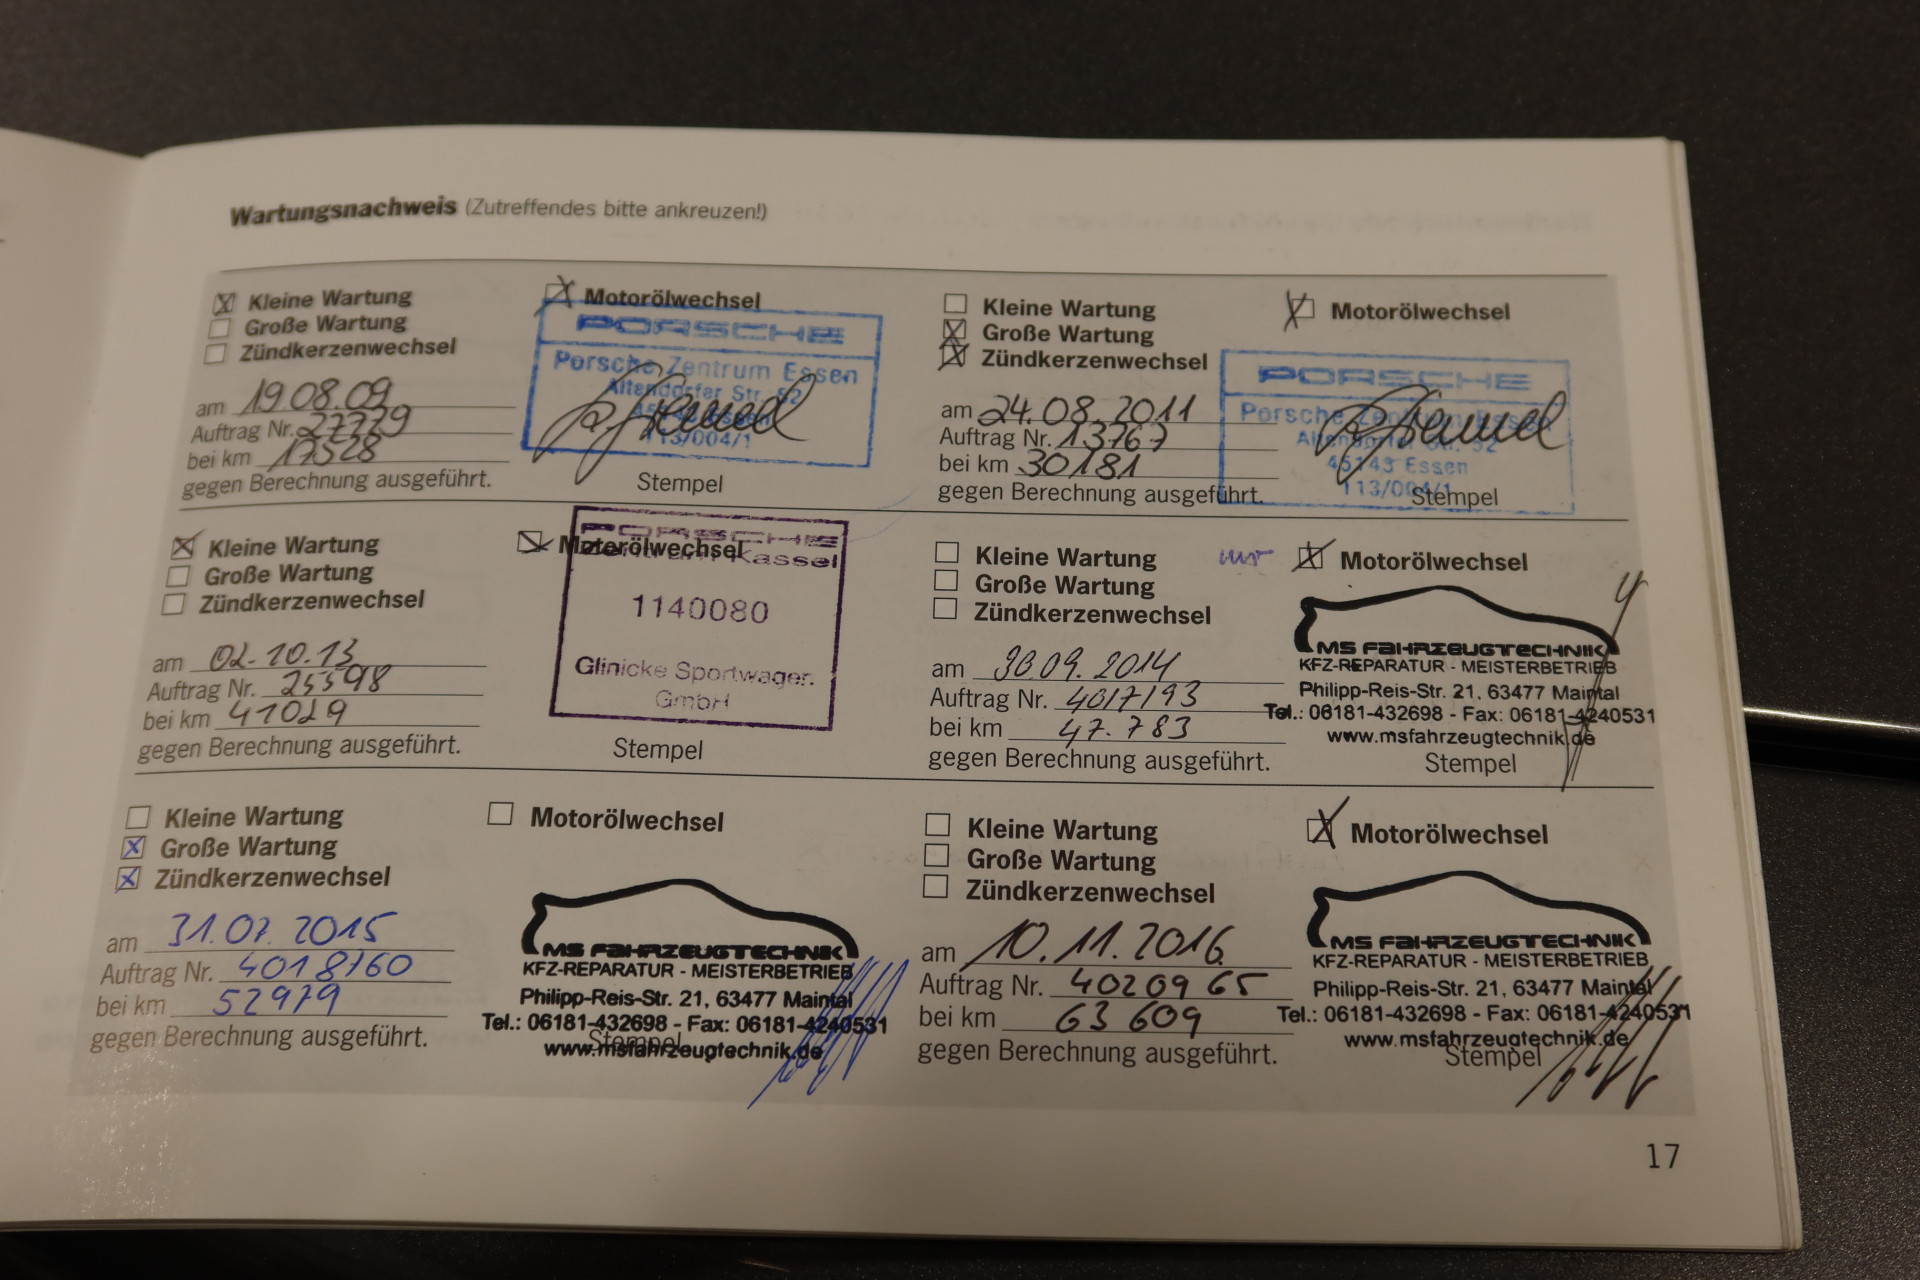 Wartungsnachweis (Zutreffendes bitte ankreuzen!)
Kleine Wartung
Große Wartung
Zündkerzenwechsel
Motorölwechsel
am 19.08.09
Auftrag Nr. 27729
bei km 17528
gegen Berechnung ausgeführt.
PORSCHE
Porsche Zentrum Essen
Altendorfer Str. 52
45143 Essen
113/004/1
Stempel
Kleine Wartung
Große Wartung
Zündkerzenwechsel
Motorölwechsel
am 24.08.2011
Auftrag Nr. 13767
bei km 30181
gegen Berechnung ausgeführt.
PORSCHE
Porsche Zentrum Essen
Altendorfer Str. 52
45143 Essen
113/004/1
Stempel
Kleine Wartung
Große Wartung
Zündkerzenwechsel
Motorölwechsel
am 02.10.13
Auftrag Nr. 25598
bei km 41029
gegen Berechnung ausgeführt.
PORSCHE
Zentrum Kassel
1140080
Glinicke Sportwagen
GmbH
Stempel
Kleine Wartung
Große Wartung
Zündkerzenwechsel
nur Motorölwechsel
am 30.09.2014
Auftrag Nr. 4017193
bei km 47.783
gegen Berechnung ausgeführt.
MS FAHRZEUGTECHNIK
KFZ-REPARATUR - MEISTERBETRIEB
Philipp-Reis-Str. 21, 63477 Maintal
Tel.: 06181-432698 - Fax: 06181-4240531
www.msfahrzeugtechnik.de
Stempel
Kleine Wartung
Große Wartung
Zündkerzenwechsel
Motorölwechsel
am 31.07.2015
Auftrag Nr. 4018760
bei km 52979
gegen Berechnung ausgeführt.
MS FAHRZEUGTECHNIK
KFZ-REPARATUR - MEISTERBETRIEB
Philipp-Reis-Str. 21, 63477 Maintal
Tel.: 06181-432698 - Fax: 06181-4240531
www.msfahrzeugtechnik.de
Stempel
Kleine Wartung
Große Wartung
Zündkerzenwechsel
Motorölwechsel
am 10.11.2016
Auftrag Nr. 4020965
bei km 63 609
gegen Berechnung ausgeführt.
MS FAHRZEUGTECHNIK
KFZ-REPARATUR - MEISTERBETRIEB
Philipp-Reis-Str. 21, 63477 Maintal
Tel.: 06181-432698 - Fax: 06181-4240531
www.msfahrzeugtechnik.de
Stempel
17